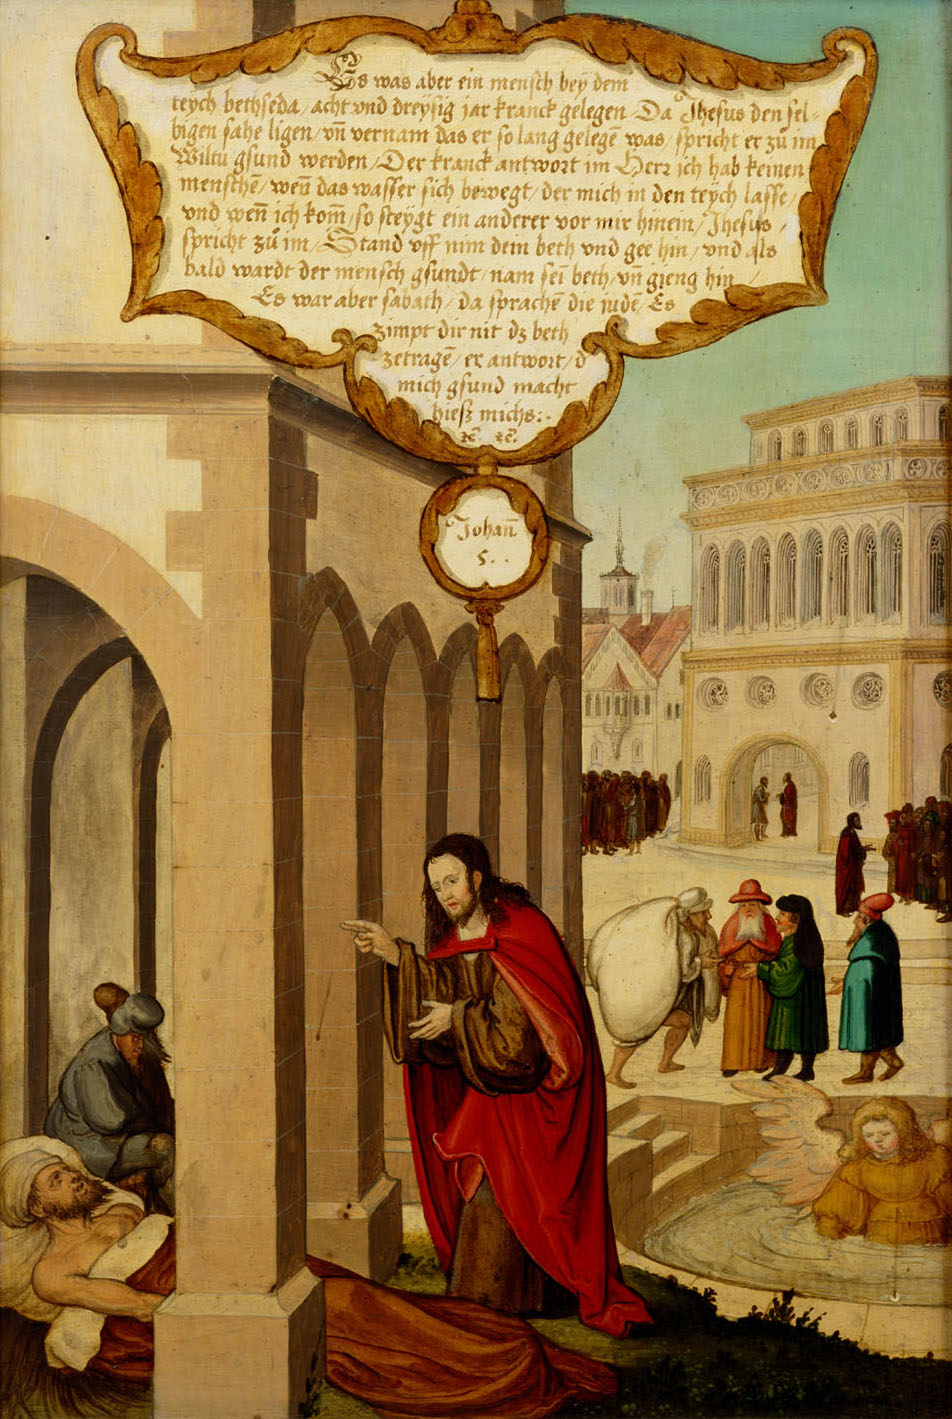 Es was aber ein mensch beÿ dem
teych bethseda, acht vnd dreysig jar kranck gelegen/Da Jhesus den sel-
bigen sahe ligen/vn̄ vernam das er so lang gelegē was/spricht er zů im
Wiltu gsund werden/Der kranck antwort im Herr ich hab keinen
menschē/wen̄ das wasser sich bewegt/der mich in den teÿch lasse/
vnd wen̄ ich kom̄/so steÿgt ein anderer vor mir hinein/Jhesus
spricht zů im/Stand vff nim dein beth vnd gee hin/vnd als
bald wardt der mensch gsundt/nam sein̄ beth/vn̄ gieng hin
Es war aber sabath/da sprachē die judē/Es
zimpt dir nit dz beth
zetragē/er antwort/d
mich gsund macht
hiesz michs:.
zc̄ zc̄.
Johan̄
5..